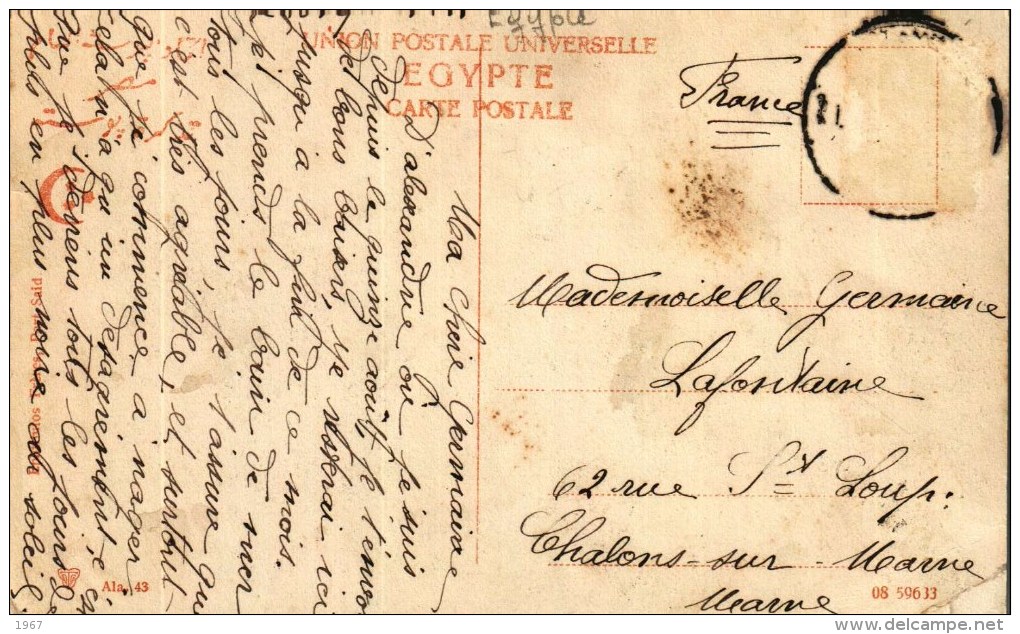 Egypte
UNION POSTALE UNIVERSELLE
EGYPTE
CARTE POSTALE
France
Ma chère Germaine
D'alexandrie où je suis
depuis le quinze août, je t'envoie
de bons baisers, je resterai ici
jusqu'à la fin de ce mois.
je prends le bain de mer
tous les jours, je t'assure que
c'est très agréable, et surtout
que je commence à nager
cela n'a qu'un désagrément, c'est
que je deviens tous les jours de
plus en plus noire au soleil
Mademoiselle Germaine
Lafontaine
62 rue St Loup.
Chalons-sur-Marne
Marne
Port Said
Ala. 43
08 59633
1967
delcampe.net